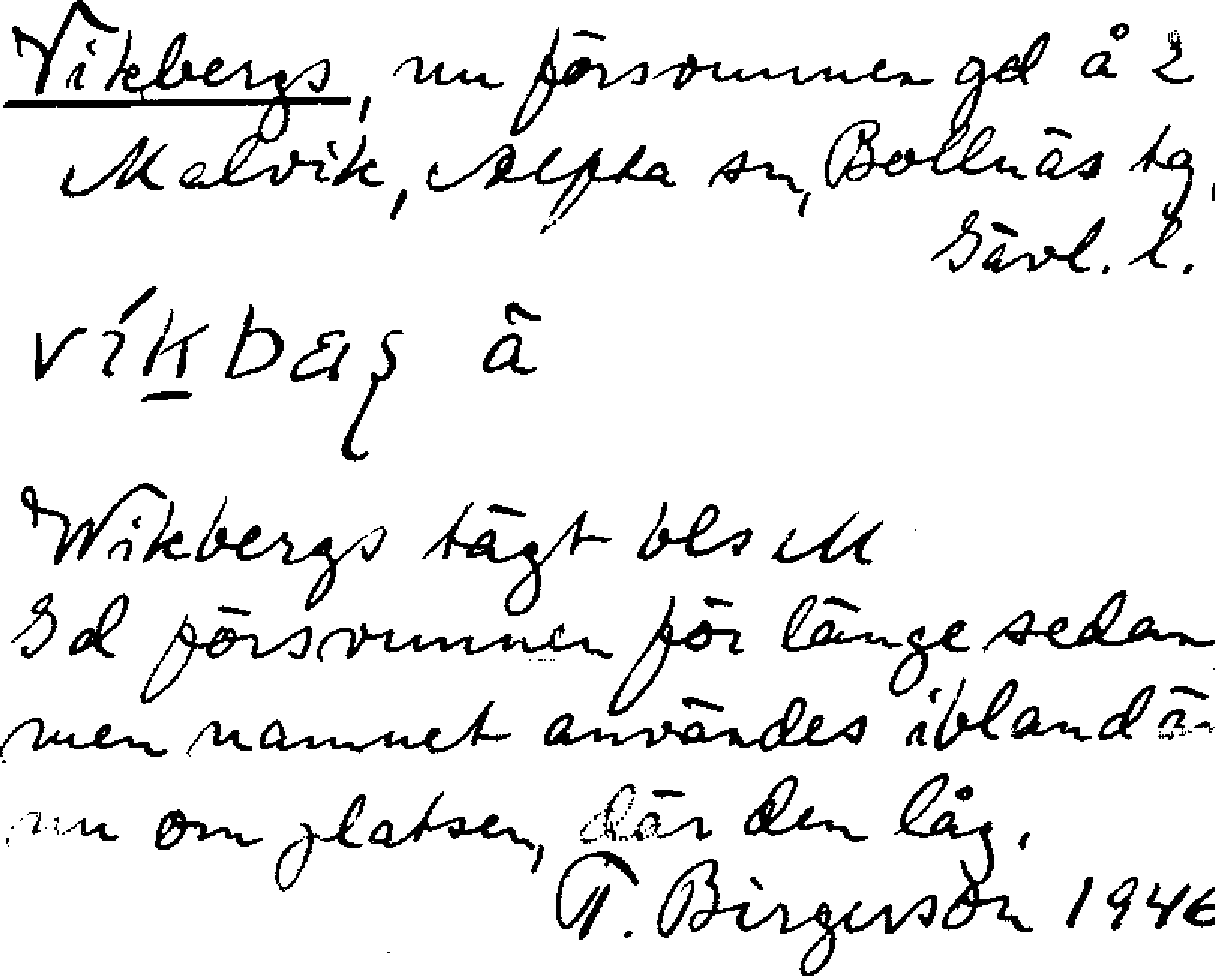 Vikbergs, nu försvunnen gd å 2
Malvik, Alfta sn, Bollnäs tg,
Gävl. l.
víkbaş ä
Wikbergs tägt bls M
Gd försvunnen för länge sedan
men namnet användes ibland än-
nu om platsen, där den låg.
T. Birgerson 1946